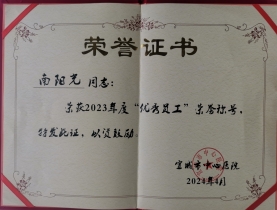 荣誉证书
南阳光 同志：
荣获2023年度“优秀员工”荣誉称号，
特发此证，以资鼓励。
宜城市中心医院
2024年4月